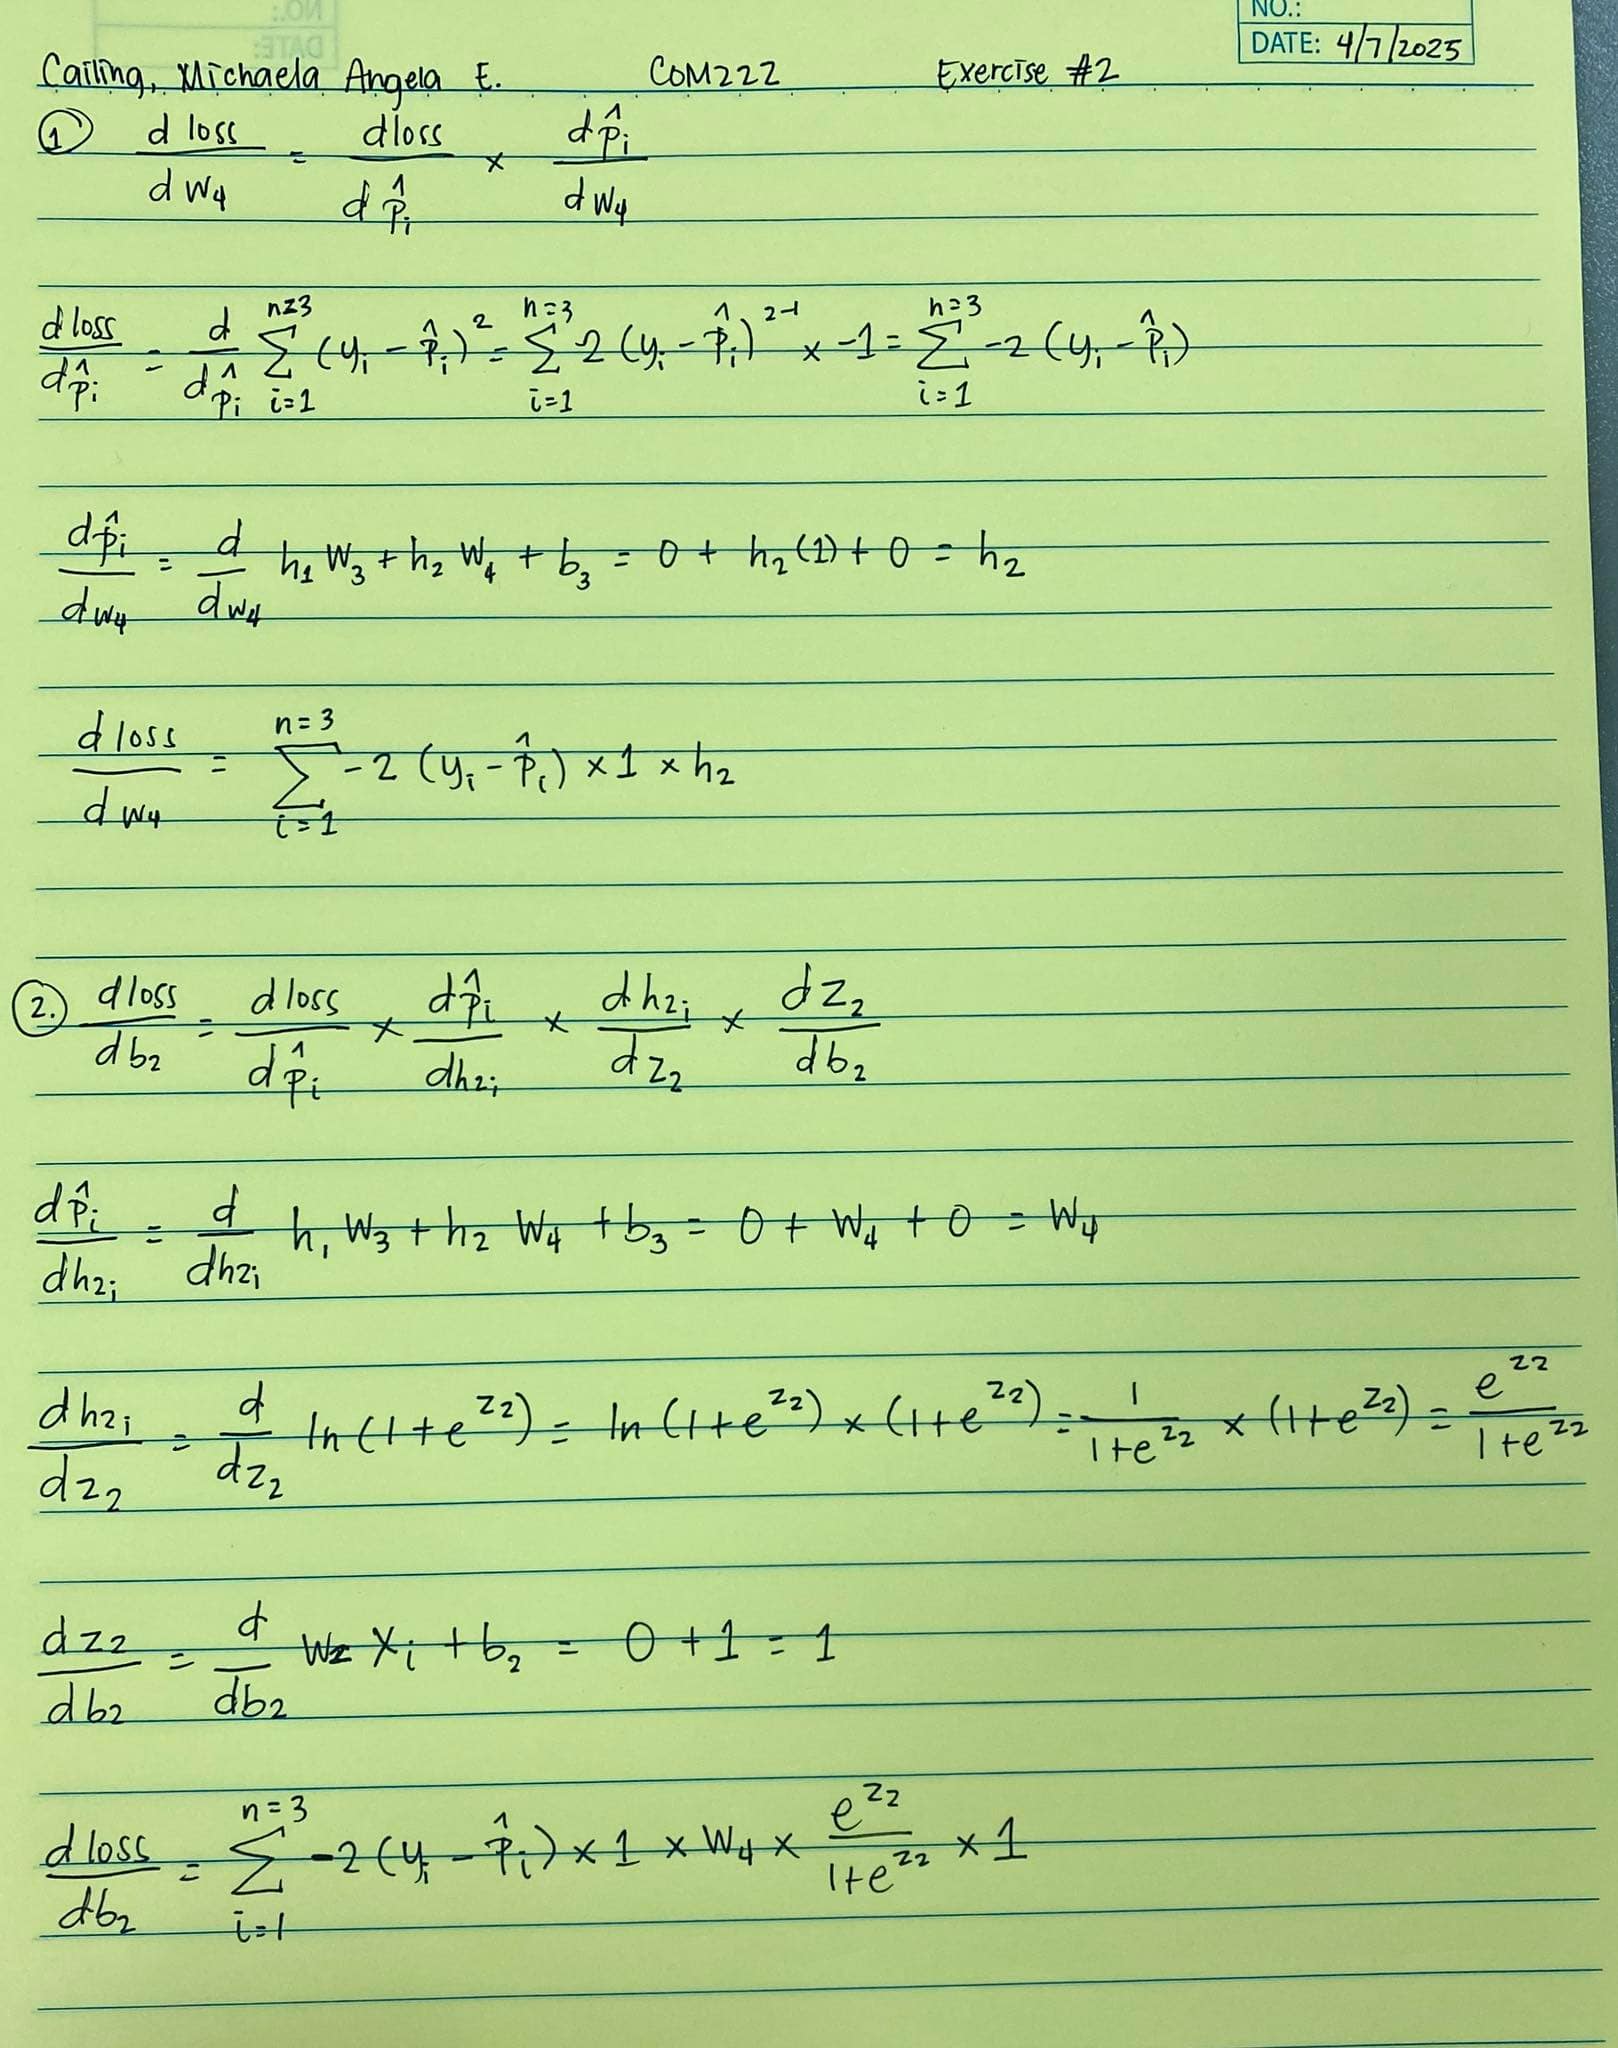 NO.:
DATE: 4/7/2025
Cailing, Michaela Angela E. COM222 Exercise #2
① d loss / d w₄ = d loss / d p̂ᵢ × d p̂ᵢ / d w₄
d loss / d p̂ᵢ = d / d p̂ᵢ Σ n=3 i=1 (yᵢ - p̂ᵢ)² = Σ n=3 i=1 2 (yᵢ - p̂ᵢ)²⁻¹ x -1 = Σ n=3 i=1 -2 (yᵢ - p̂ᵢ)
d p̂ᵢ / d w₄ = d / d w₄ h₁ w₃ + h₂ w₄ + b₃ = 0 + h₂ (1) + 0 = h₂
d loss / d w₄ = Σ n=3 i=1 -2 (yᵢ - p̂ᵢ) x 1 x h₂
②. d loss / d b₂ = d loss / d p̂ᵢ x d p̂ᵢ / d h₂ᵢ x d h₂ᵢ / d z₂ x d z₂ / d b₂
d p̂ᵢ / d h₂ᵢ = d / d h₂ᵢ h₁ w₃ + h₂ w₄ + b₃ = 0 + w₄ + 0 = w₄
d h₂ᵢ / d z₂ = d / d z₂ ln (1 + e^z₂) = ln (1 + e^z₂) x (1 + e^z₂) = 1 / 1 + e^z₂ x (1 + e^z₂) = e^z₂ / 1 + e^z₂
d z₂ / d b₂ = d / d b₂ w₂ xᵢ + b₂ = 0 + 1 = 1
d loss / d b₂ = Σ n=3 i=1 -2 (yᵢ - p̂ᵢ) x 1 x w₄ x e^z₂ / 1 + e^z₂ x 1